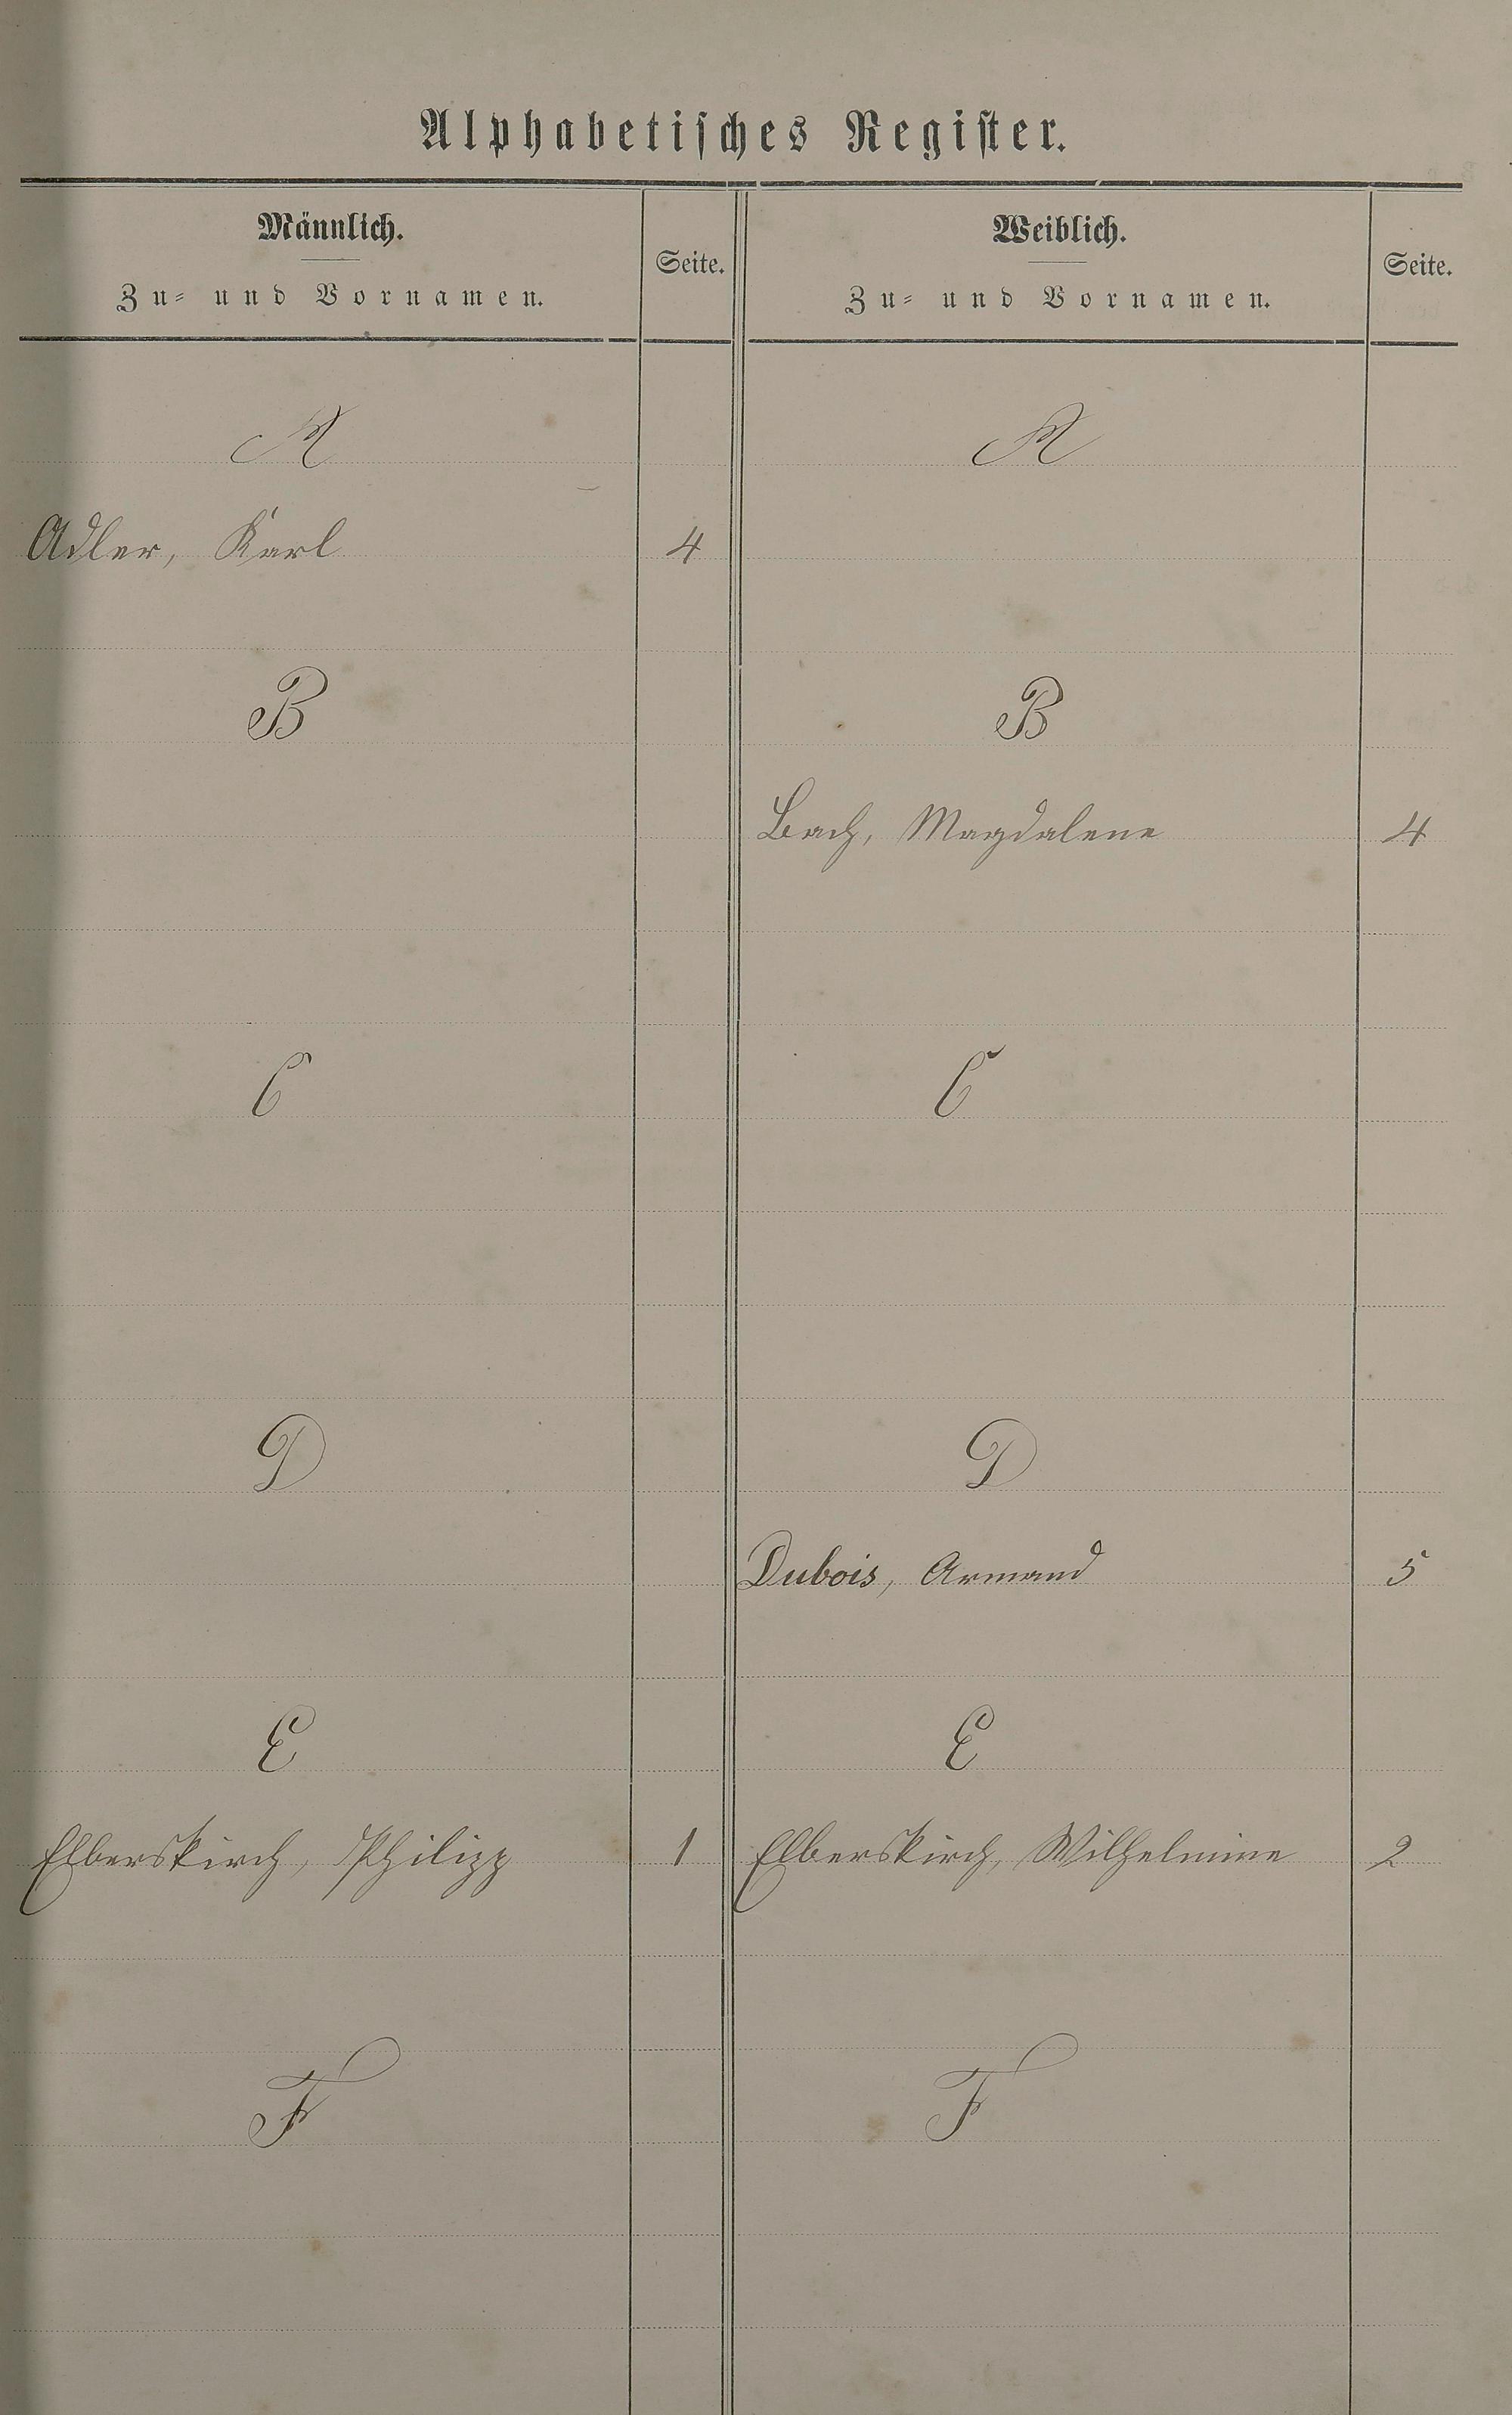 Alphabetisches Register.
Männlich. Seite. Weiblich. Seite.
Zu- und Vornamen. Zu- und Vornamen.
A A
Adler, Karl 4
B B
Bach, Magdalene 4
C C
D D
Dubois, Armand 5
E E
Elberskirch, Philipp 1 Elberskirch, Wilhelmine 2
F F